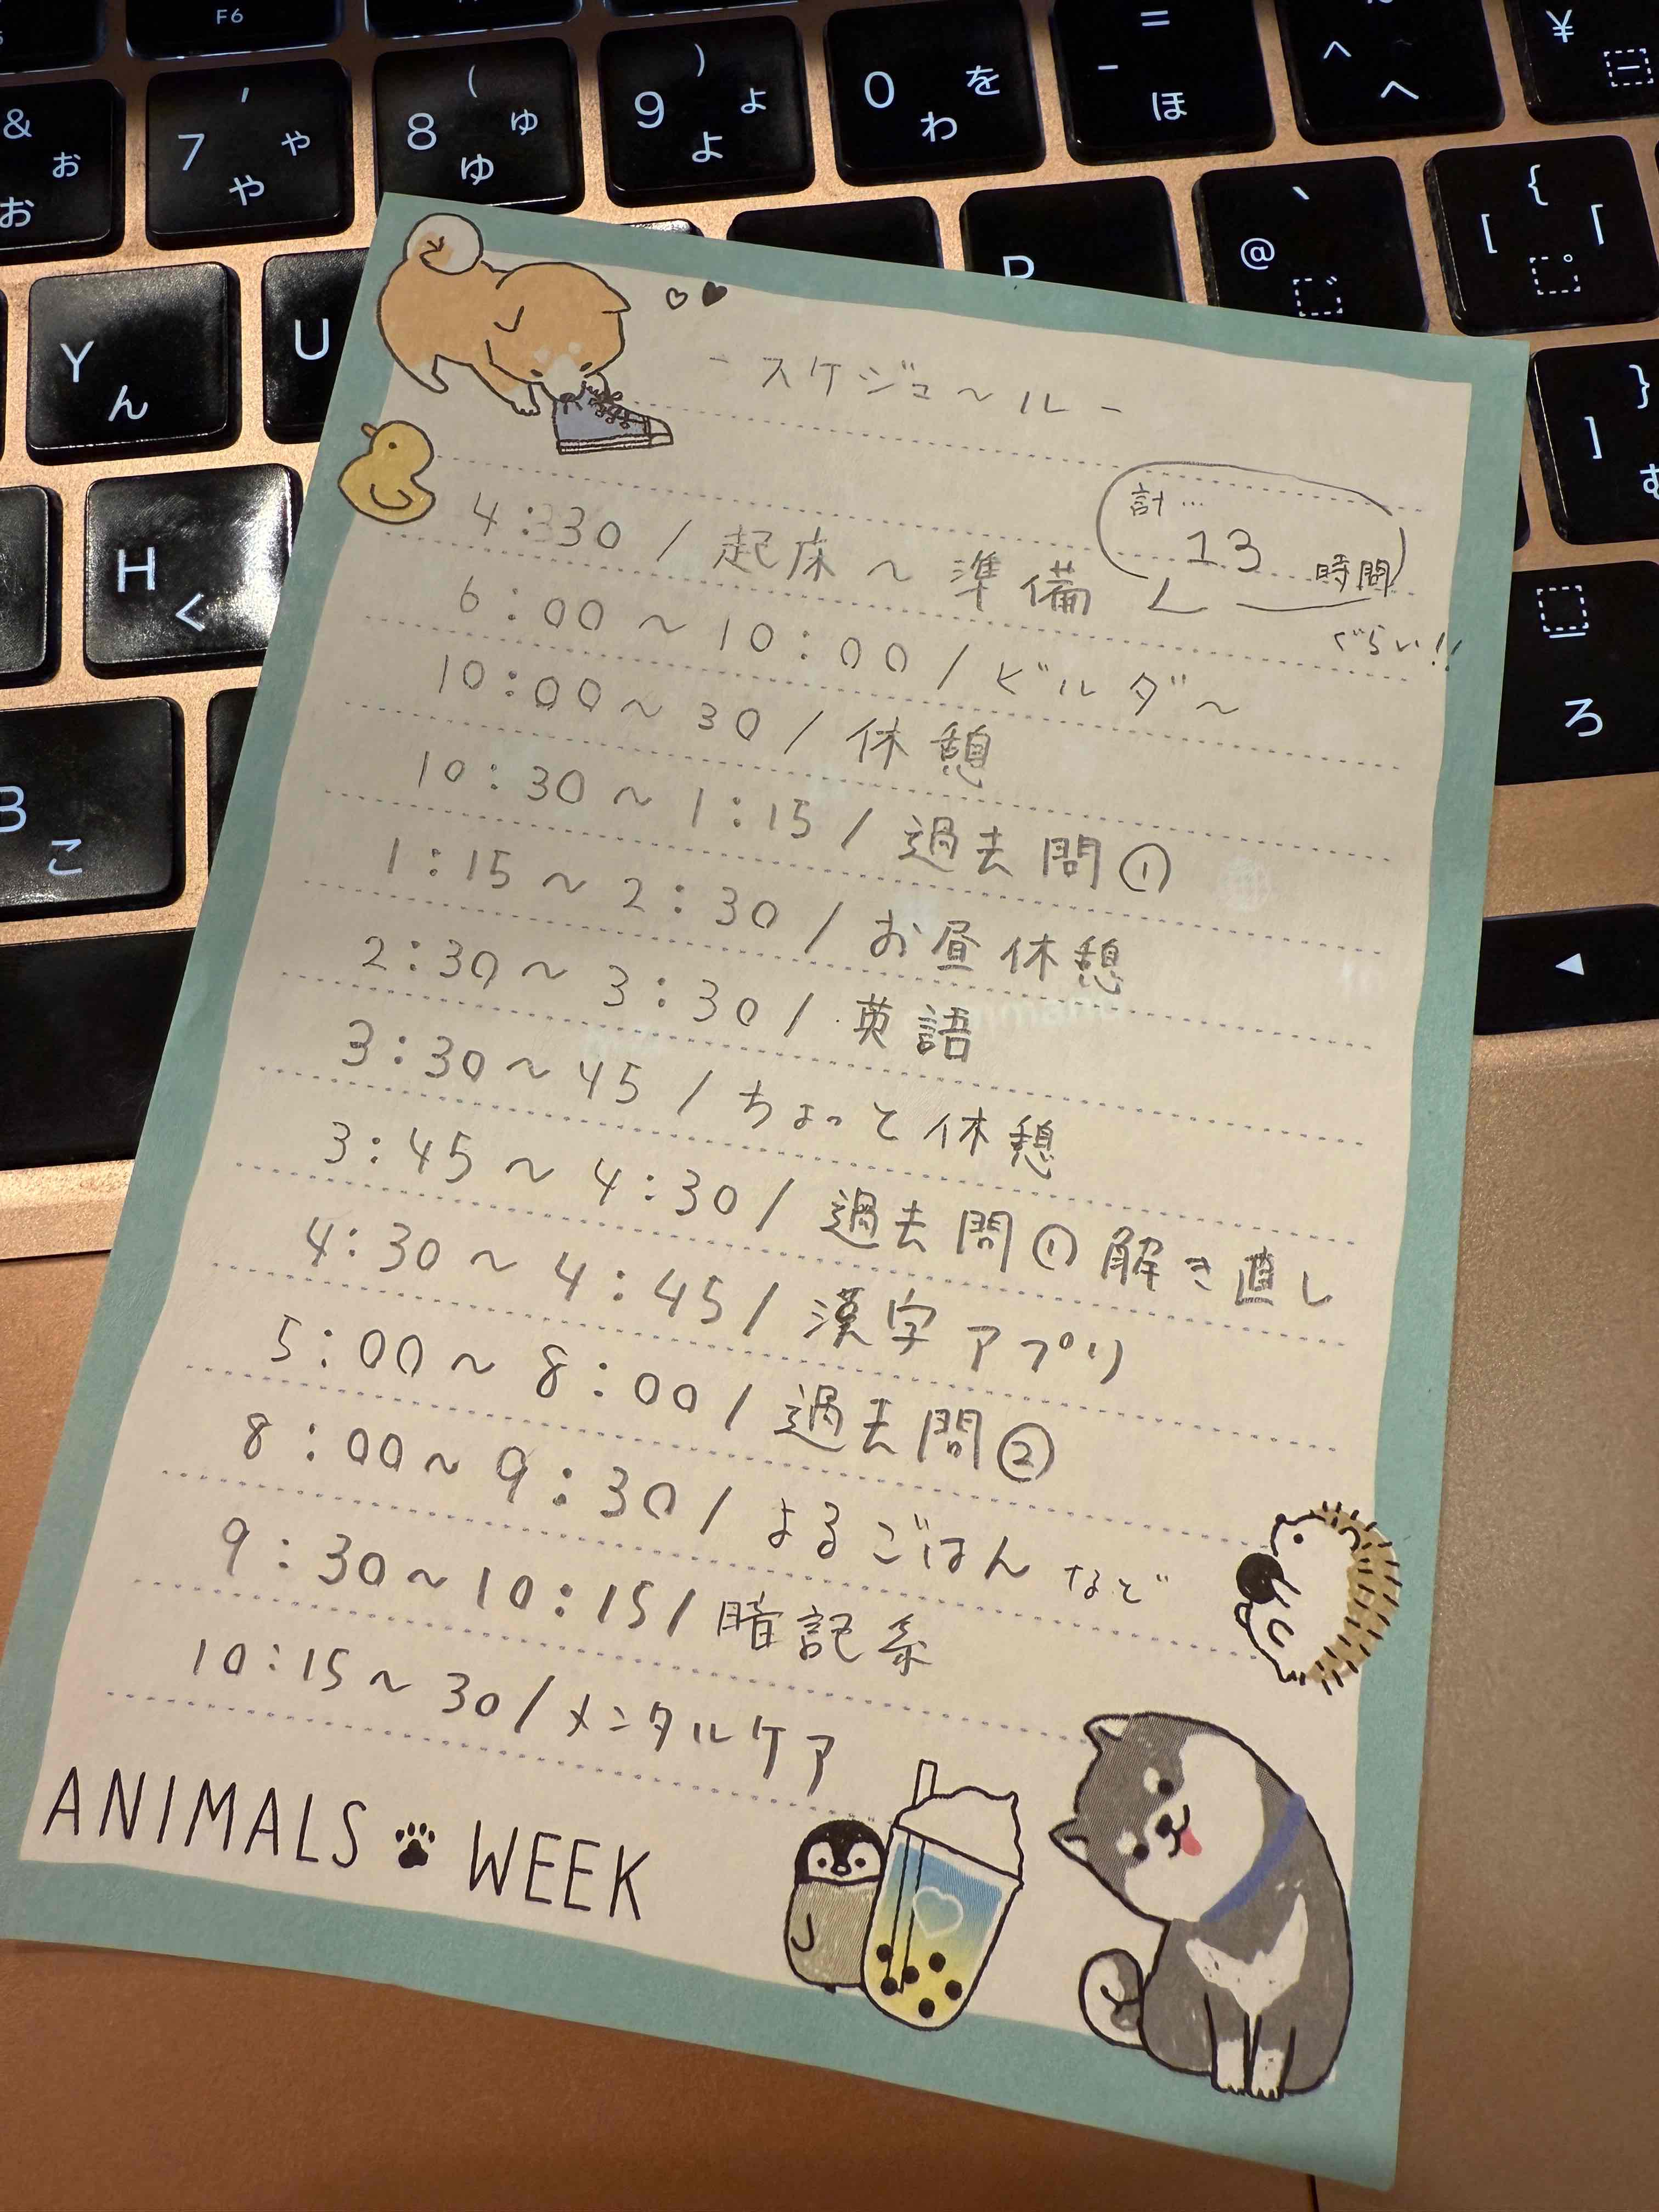 F6
& お お
' 7 や や
( 8 ゅ ゆ
) 9 ょ よ
0 を わ
= - ほ
へ へ
¥
Y ん
U
P
@
{ [ 「
} ]
H く
B こ
ろ
- スケジュ〜ル -
計…
13 時間
ぐらい!!
4:30 / 起床 〜 準備
6:00 〜 10:00 / ビルダ〜
10:00 〜 30 / 休憩
10:30 〜 1:15 / 過去問①
1:15 〜 2:30 / お昼休憩
2:30 〜 3:30 / 英語
3:30 〜 45 / ちょっと休憩
3:45 〜 4:30 / 過去問① 解き直し
4:30 〜 4:45 / 漢字アプリ
5:00 〜 8:00 / 過去問②
8:00 〜 9:30 / よるごはん など
9:30 〜 10:15 / 暗記系
10:15 〜 30 / メンタルケア
ANIMALS WEEK